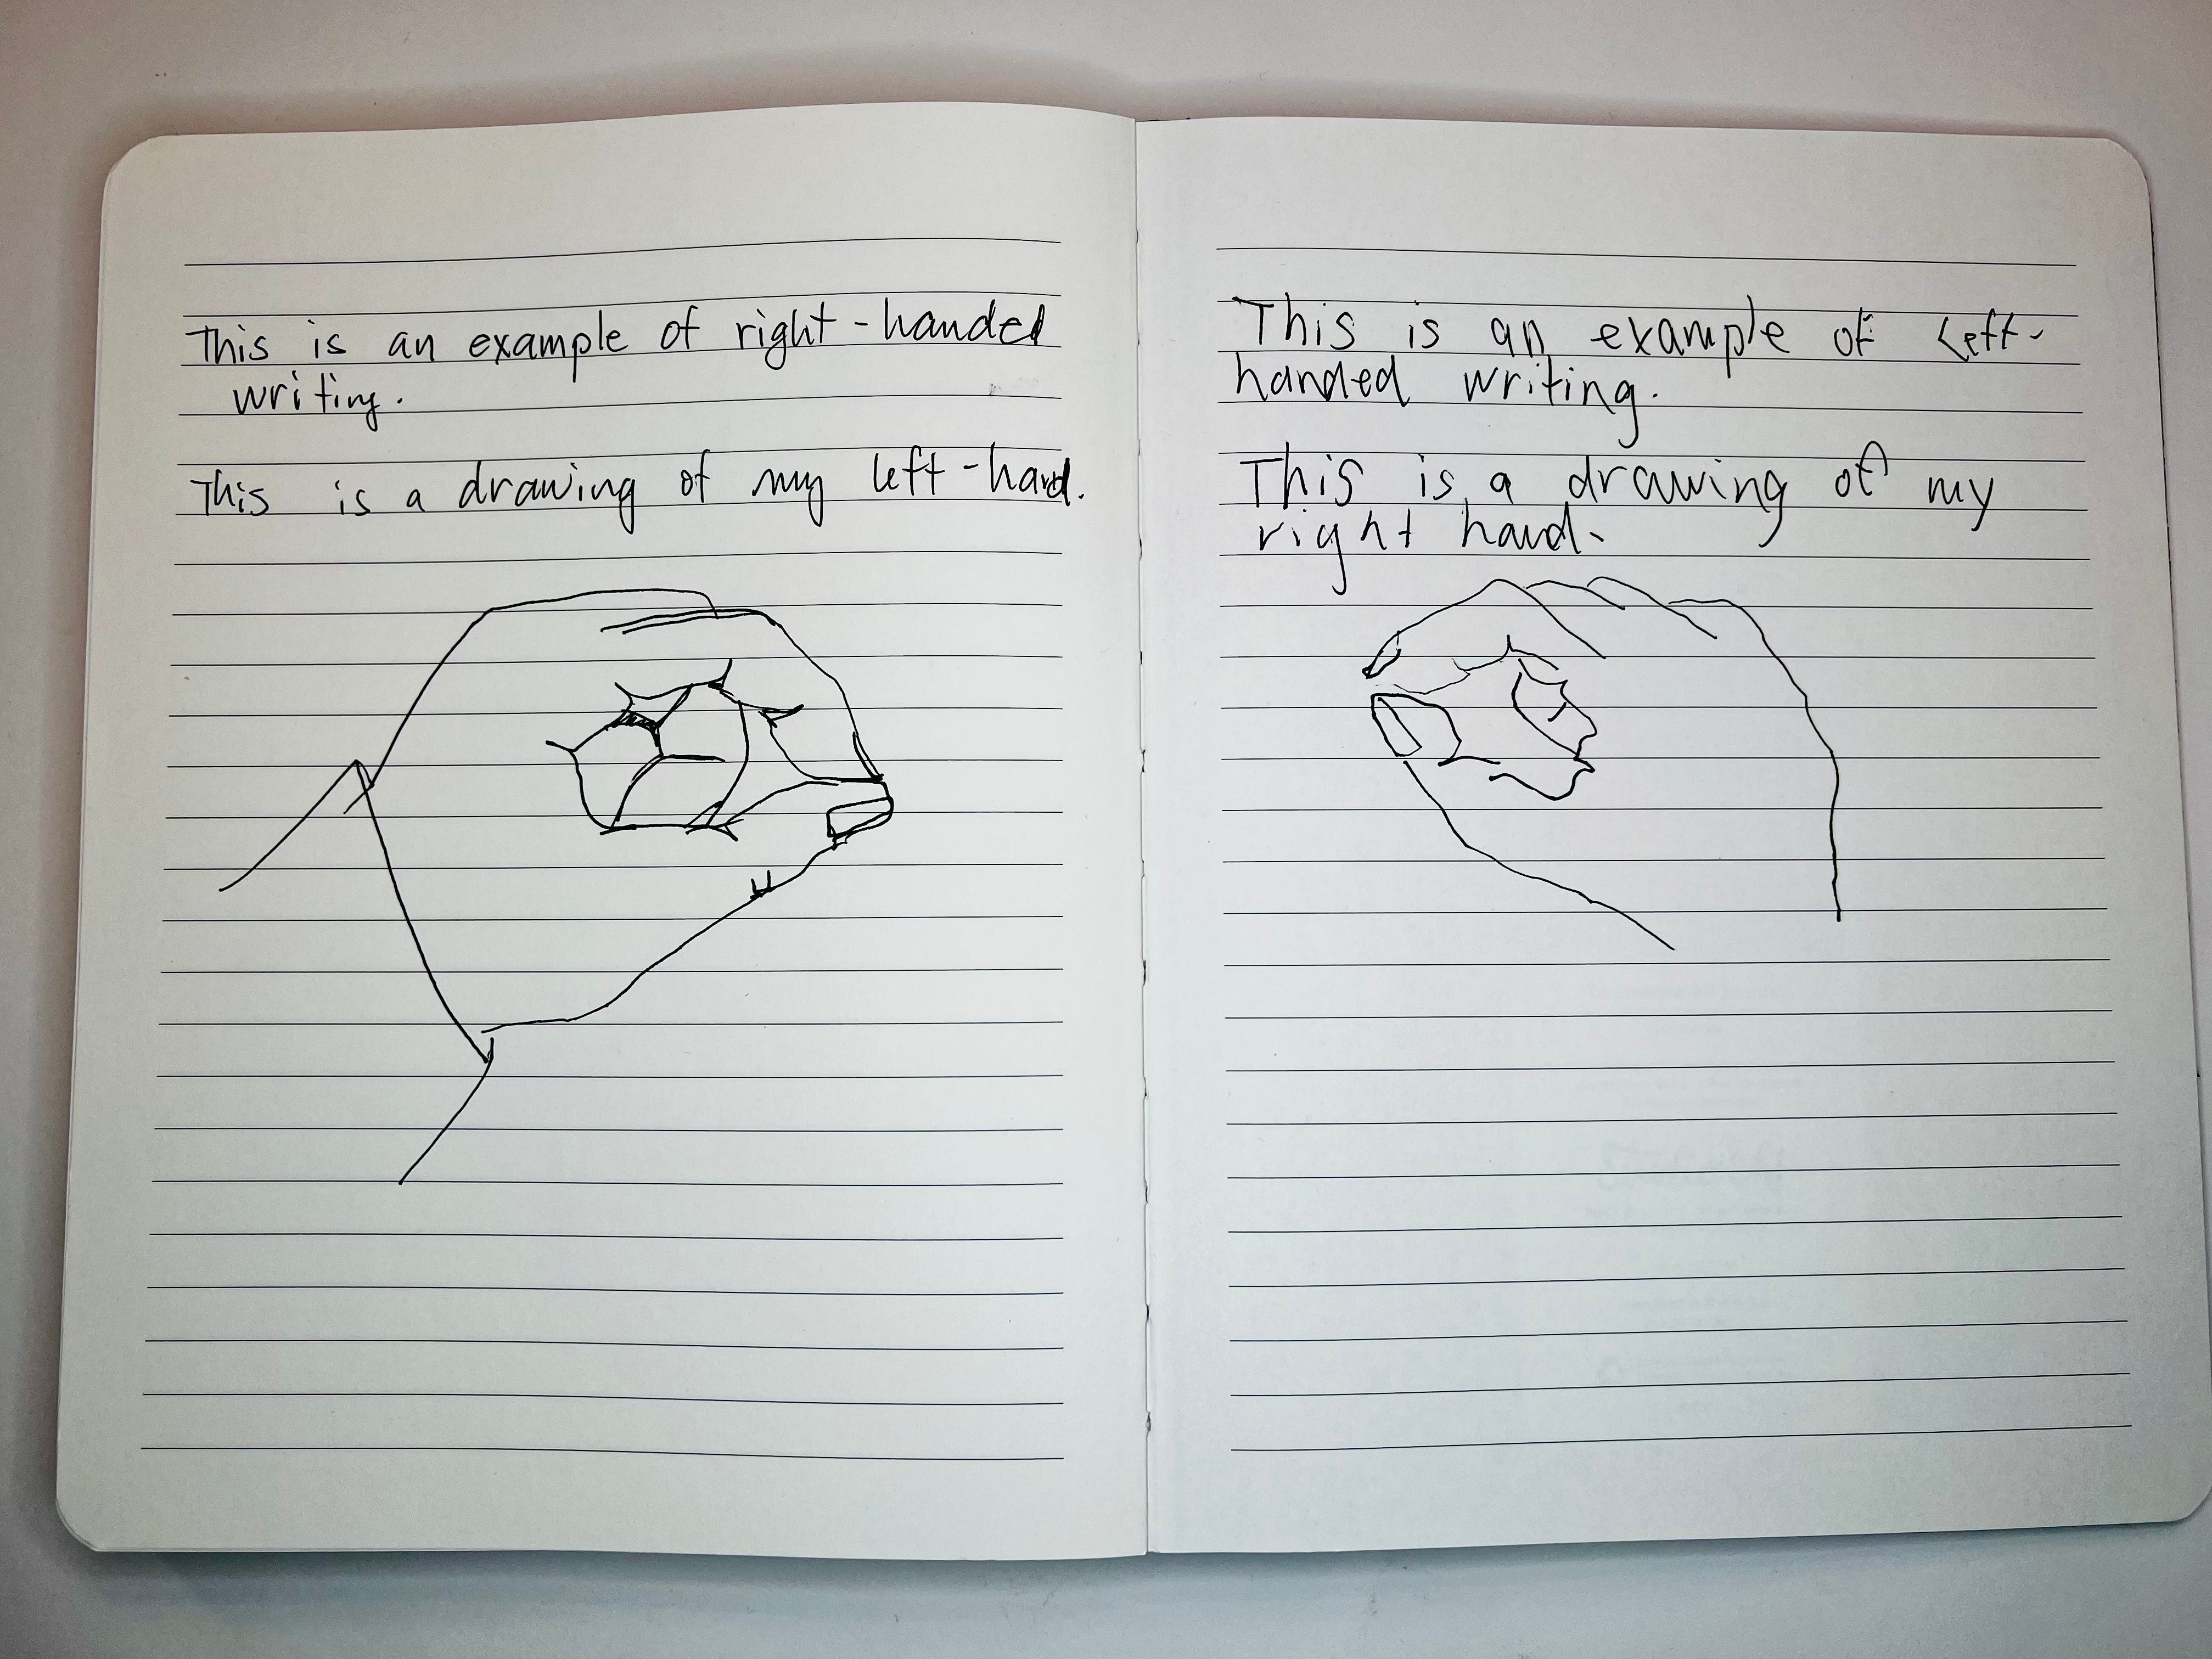 This is an example of right-handed
writing.
This is a drawing of my left-hand.
This is an example of Left-
handed writing.
This is a drawing of my
right hand.